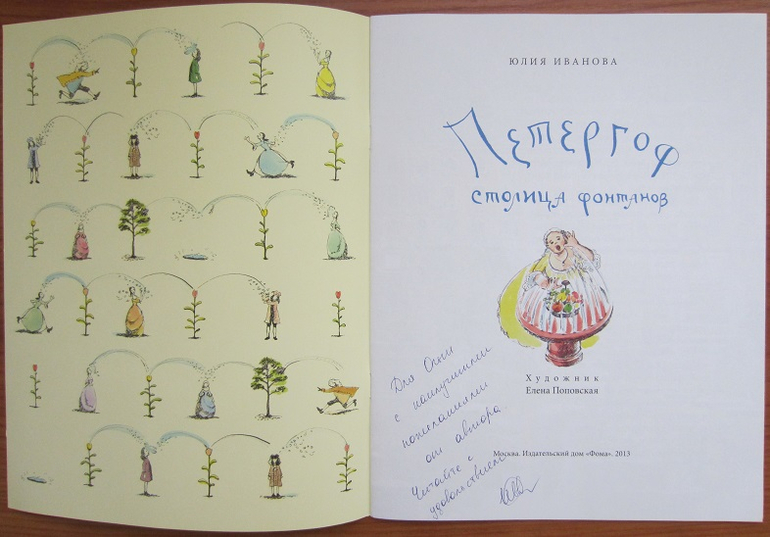 ЮЛИЯ ИВАНОВА
Петергоф
столица фонтанов
Художник
Елена Поповская
Для Оли
с наилучшими
пожеланиями
от автора.
Читайте с
удовольствием
Москва. Издательский дом «Фома». 2013